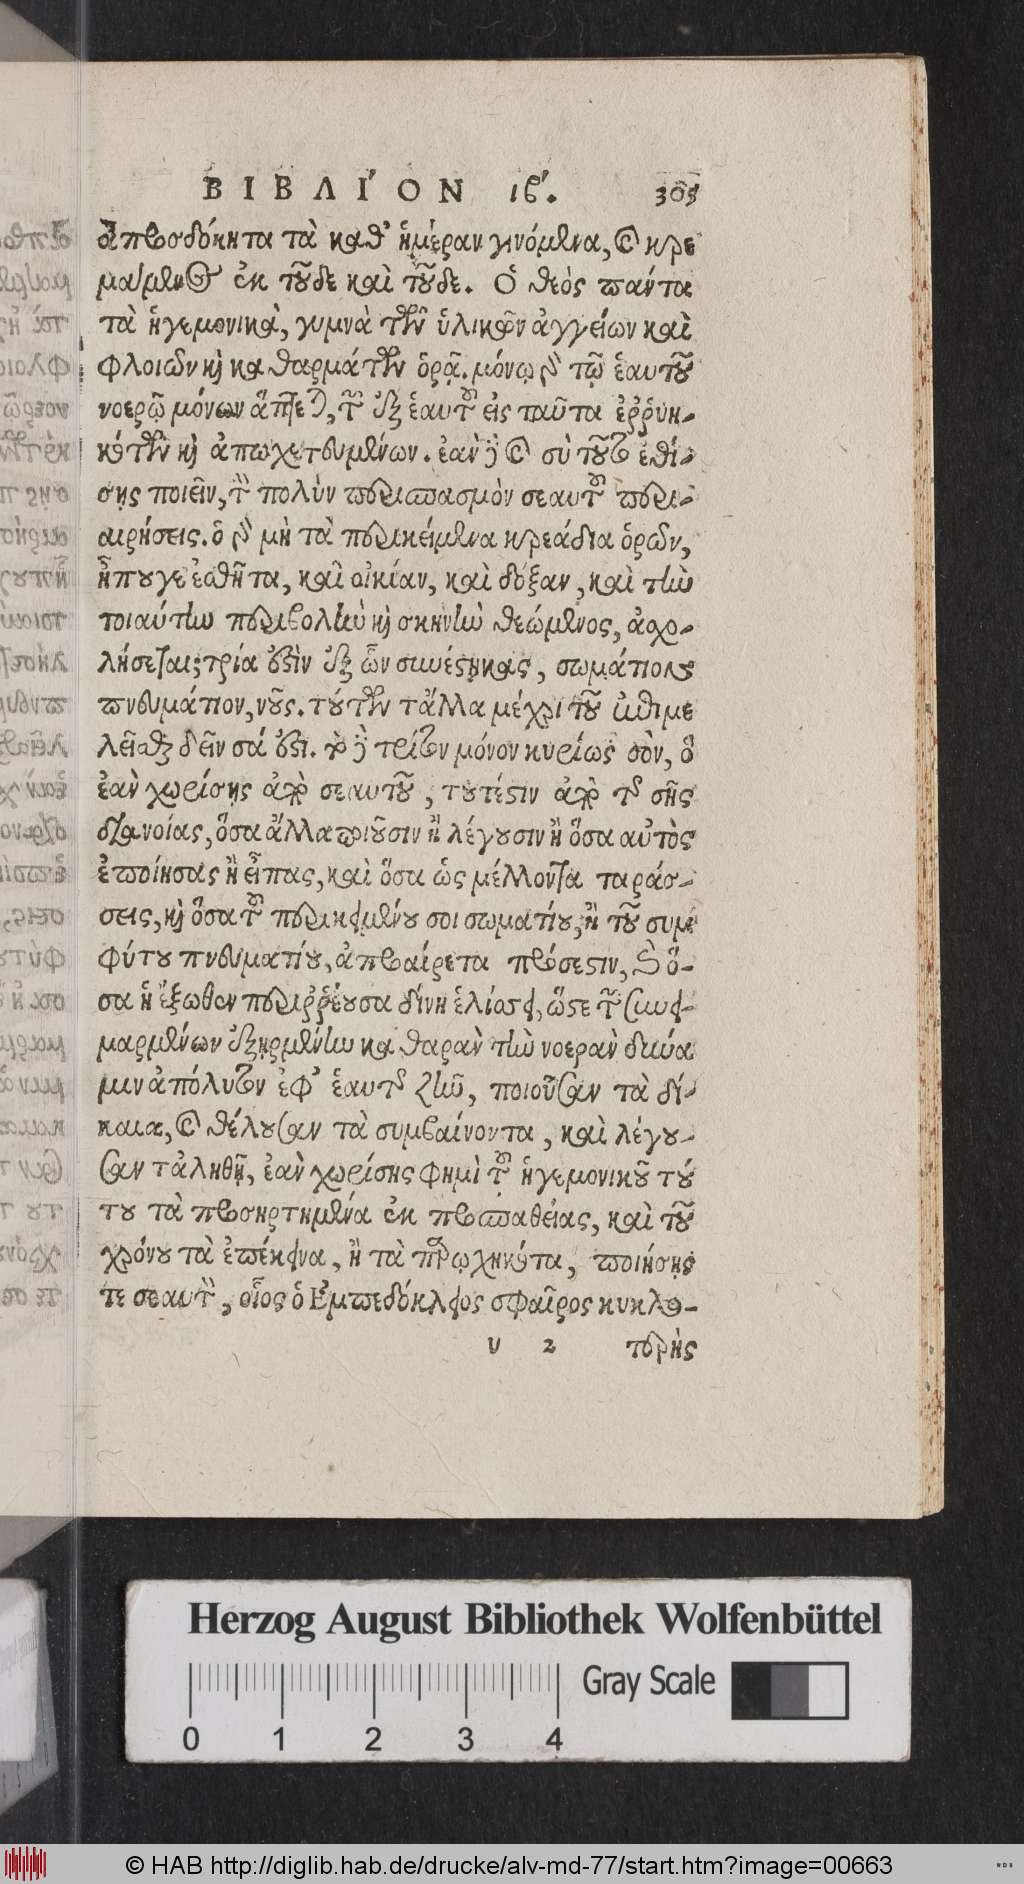 ΒΙΒΛΙΌΝ ιβ´. 305
ἀπροσδόκητα τὰ καθ' ἡμέραν γινόμενα, καὶ κρε
μάμενος ἐκ τοῦδε καὶ τοῦδε. Ὁ θεὸς πάντα
τὰ ἡγεμονικὰ, γυμνὰ τῶν ὑλικῶν ἀγγείων καὶ
φλοιῶν καὶ καθαρμάτων ὁρᾷ. μόνῳ γὰρ τῷ ἑαυτοῦ
νοερῷ μόνων ἅπτεται, τῶν ἐξ ἑαυτοῦ εἰς ταῦτα ἐῤῥυη-
κότων καὶ ἀπωχετευμένων. ἐὰν δὲ καὶ σὺ τοῦτο ἐθί-
σῃς ποιεῖν, τὸν πολὺν περισπασμὸν σεαυτοῦ περι-
αιρήσεις. ὁ γὰρ μὴ τὰ περικείμενα κρεάδια ὁρῶν,
ἦπουγε ἐσθῆτα, καὶ οἰκίαν, καὶ δόξαν, καὶ τὴν
τοιαύτην περιβολὴν καὶ σκηνὴν θεώμενος, ἀσχο-
λήσεται; τρία ἐστὶν ἐξ ὧν συνέστηκας, σωμάτιον,
πνευμάτιον, νοῦς. τούτων τἄλλα μέχρι τοῦ ἐπιμε
λεῖσθαι δεῖν σά ἐστι. τὸ δὲ τρίτον μόνον κυρίως σὸν, ὃ
ἐὰν χωρίσῃς ἀπὸ σεαυτοῦ, τουτέστιν ἀπὸ τῆς σῆς
διανοίας, ὅσα ἄλλα ποιοῦσιν ἢ λέγουσιν ἢ ὅσα αὐτὸς
ἐποίησας ἢ εἶπας, καὶ ὅσα ὡς μέλλοντα ταράσ-
σεις, καὶ ὅσα τοῦ περικειμένου σοι σωματίου, ἢ τοῦ συμ
φύτου πνευματίου, ἀπροαίρετα πρόσεστιν, καὶ ὅ-
σα ἡ ἔξωθεν περιῤῥέουσα δίνη ἑλίσσει, ὥστε τῶν συνει-
μαρμένων ἐξῃρμένην καθαρὰν τὴν νοερὰν δύνα
μιν ἀπόλυτον ἐφ' ἑαυτῆς ζῆν, ποιοῦσαν τὰ δί-
καια, καὶ θέλουσαν τὰ συμβαίνοντα, καὶ λέγου-
σαν τἀληθῆ, ἐὰν χωρίσῃς φημὶ τοῦ ἡγεμονικοῦ τού
του τὰ προσηρτημένα ἐκ προσπαθείας, καὶ τοῦ
χρόνου τὰ ἐπέκεινα, ἢ τὰ παρῳχηκότα, ποιήσῃς
τε σεαυτὸν, οἷος ὁ Ἐμπεδόκλειος σφαῖρος κυκλο-
υ 2 τερὴς
Herzog August Bibliothek Wolfenbüttel
Gray Scale
0 1 2 3 4
© HAB http://diglib.hab.de/drucke/alv-md-77/start.htm?image=00663